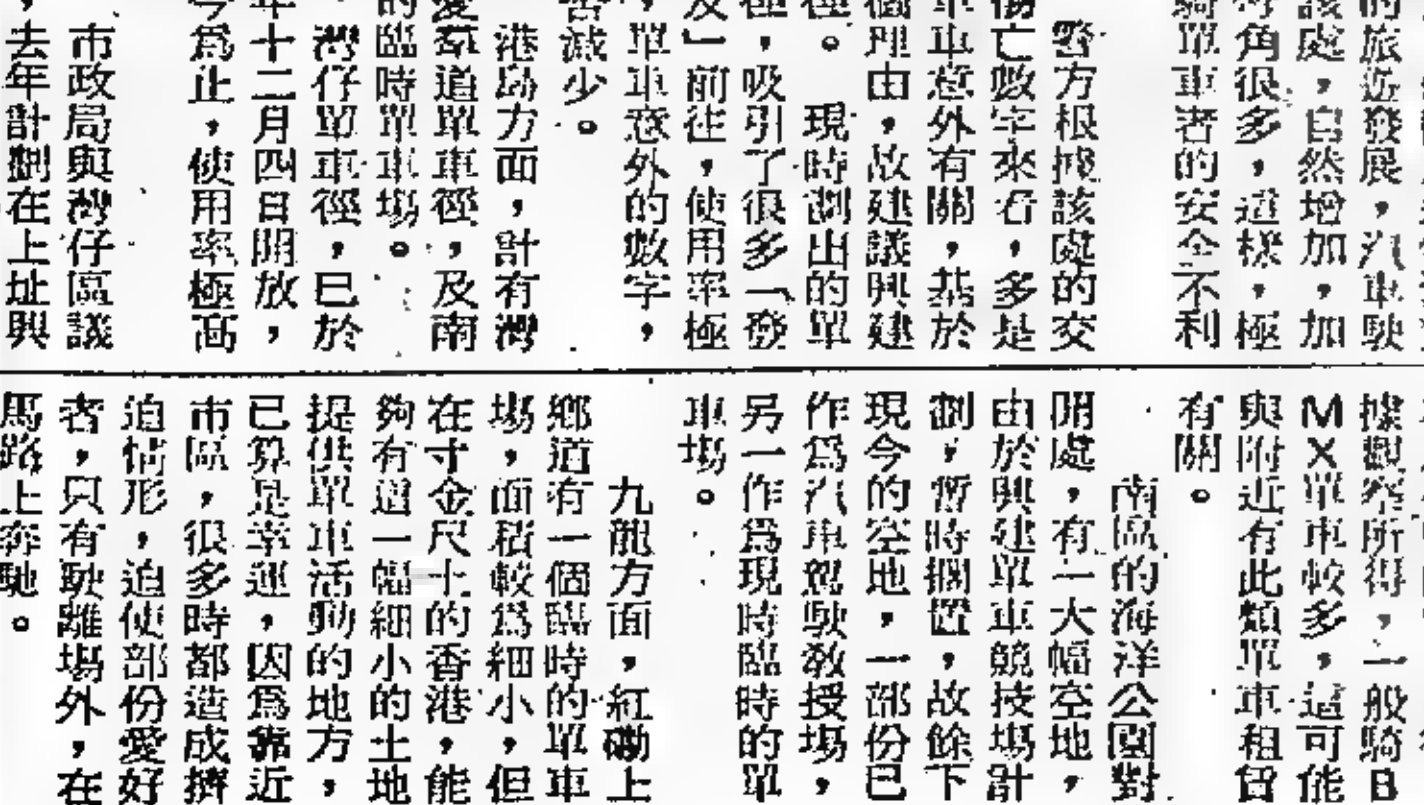 的旅遊發展，汽車駛
該處，自然增加，加
角很多，這樣，極
騎單車者的安全不利
警方根據該處的交
傷亡數字來看，多是
車意外有關，基於
個理由，故建議興建
徑。現時劃出的單
徑，吸引了很多「發
及」前往，使用率極
，單車意外的數字，
否減少。
港島方面，計有灣
愛羣道單車徑，及南
的臨時單車場。
灣仔單車徑，已於
年十二月四日開放，
今爲止，使用率極高
市政局與灣仔區議
，去年計劃在上址興
據觀察所得，一般騎B
MX單車較多，這可能
與附近有此類單車租賃
有關。
南區的海洋公園對
開處，有一大幅空地，
由於興建單車競技場計
劃，暫時擱置，故餘下
現今的空地，一部份已
作爲汽車駕駛敎授場，
另一作爲現時臨時的單
車場。
九龍方面，紅磡上
鄉道有一個臨時的單車
場，面積較爲細小，但
在寸金尺土的香港，能
夠有這一幅細小的土地
提供單車活動的地方，
已算是幸運，因爲靠近
市區，很多時都造成擠
迫情形，迫使部份愛好
者，只有駛離場外，在
馬路上奔馳。